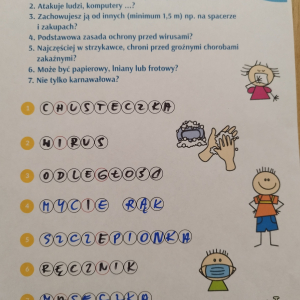 2. Atakuje ludzi, komputery ...?
3. Zachowujesz ją od innych (minimum 1,5 m) np. na spacerze
i zakupach?
4. Podstawowa zasada ochrony przed wirusami?
5. Najczęściej w strzykawce, chroni przed groźnymi chorobami
zakaźnymi?
6. Może być papierowy, lniany lub frotowy?
7. Nie tylko karnawałowa?
1 CHUSTECZKA
2 WIRUS
3 ODLEGŁOŚĆ
4 MYCIE RĄK
5 SZCZEPIONKA
6 RĘCZNIK
7 MASECZKA